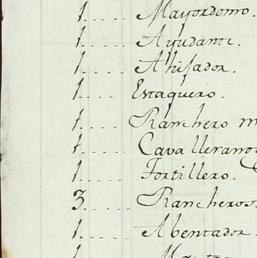 1..... Mayordomo.
1..... Ayudante.
1..... Ahijador.
1..... Estaquero.
1..... Ranchero m
1..... Cavallerano
1..... Fortillero.
3..... Rancheros
1..... Abentador.
1